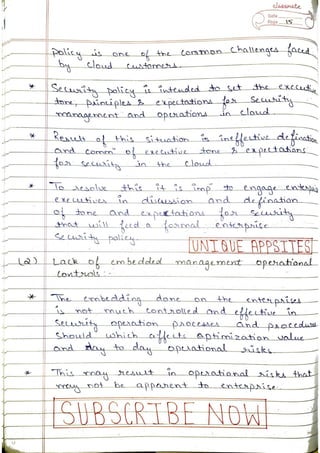 classmate
Date
Page 15
policy is one of the common challenges faced
by cloud customers.
* Security policy is intended to set the executive
tone, principles & expectations for security
management and operations in cloud.
* Result of this situation is ineffective defination
and commn of executive tone & expectations
for security in the cloud.
* To resolve this it is imp to engage enterprise
executives in discussion and defination
of tone and expectations for security
that will feed a formal enterprise
security policy.
UNIQUE APPSITES
(2) Lack of embedded management operational
controls :-
* The embedding done on the enterprises
is not much controlled and effective in
security operation processes and procedure
should which affects optimization value
and day to day operational risks.
* This may result in operational risks that
may not be apparent to enterprise.
SUBSCRIBE NOW